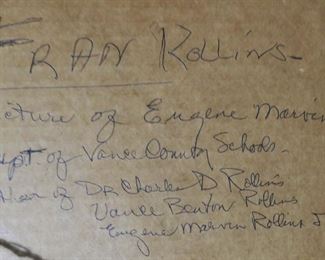 FRAN Rollins-
icture of Eugene Marvin
upt of Vance County Schools-
of DR Charles D Rollins
Vance Benton Rollins
Eugene Marvin Rollins J